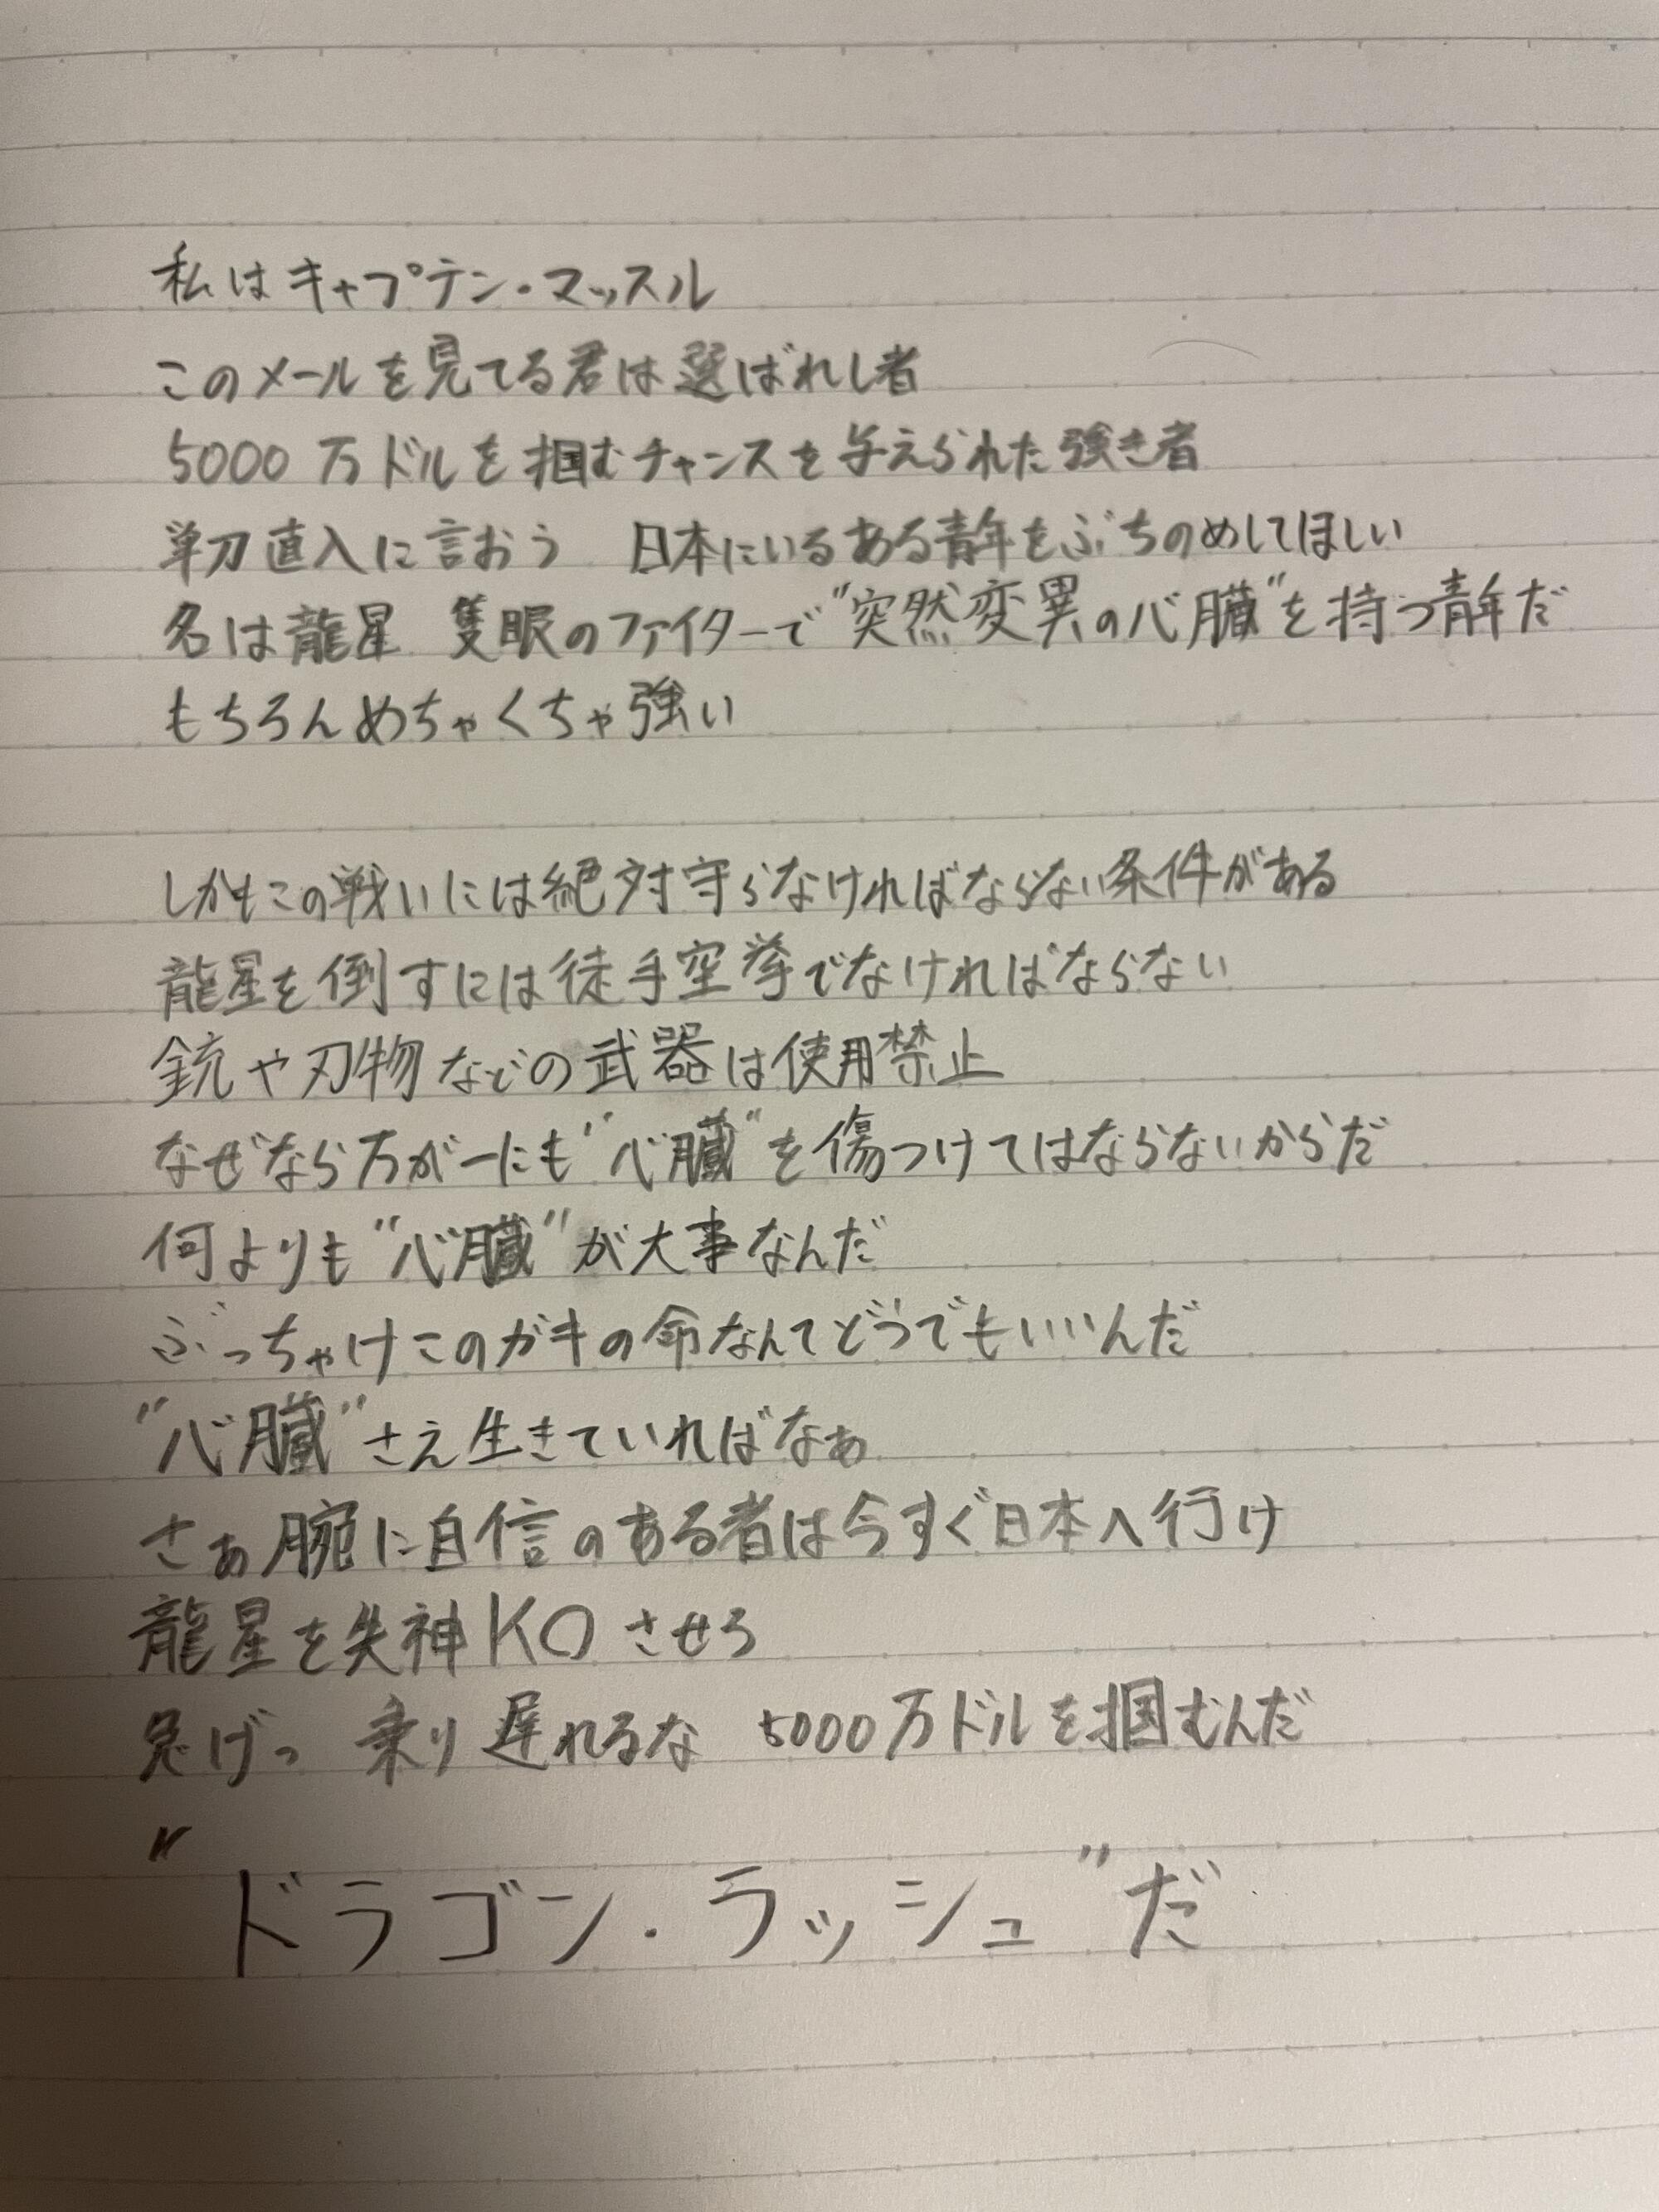 私はキャプテン・マッスル
このメールを見てる君は選ばれし者
5000万ドルを掴むチャンスを与えられた強き者
単刀直入に言おう 日本にいるある青年をぶちのめしてほしい
名は龍星 隻眼のファイターで"突然変異の心臓"を持つ青年だ
もちろんめちゃくちゃ強い
しかもこの戦いには絶対守らなければならない条件がある
龍星を倒すには徒手空拳でなければならない
銃や刃物などの武器は使用禁止
なぜなら万が一にも"心臓"を傷つけてはならないからだ
何よりも"心臓"が大事なんだ
ぶっちゃけこのガキの命なんてどうでもいいんだ
"心臓"さえ生きていればなぁ
さぁ腕に自信のある者は今すぐ日本へ行け
龍星を失神KOさせろ
急げっ 乗り遅れるな 5000万ドルを掴むんだ
"ドラゴン・ラッシュ"だ